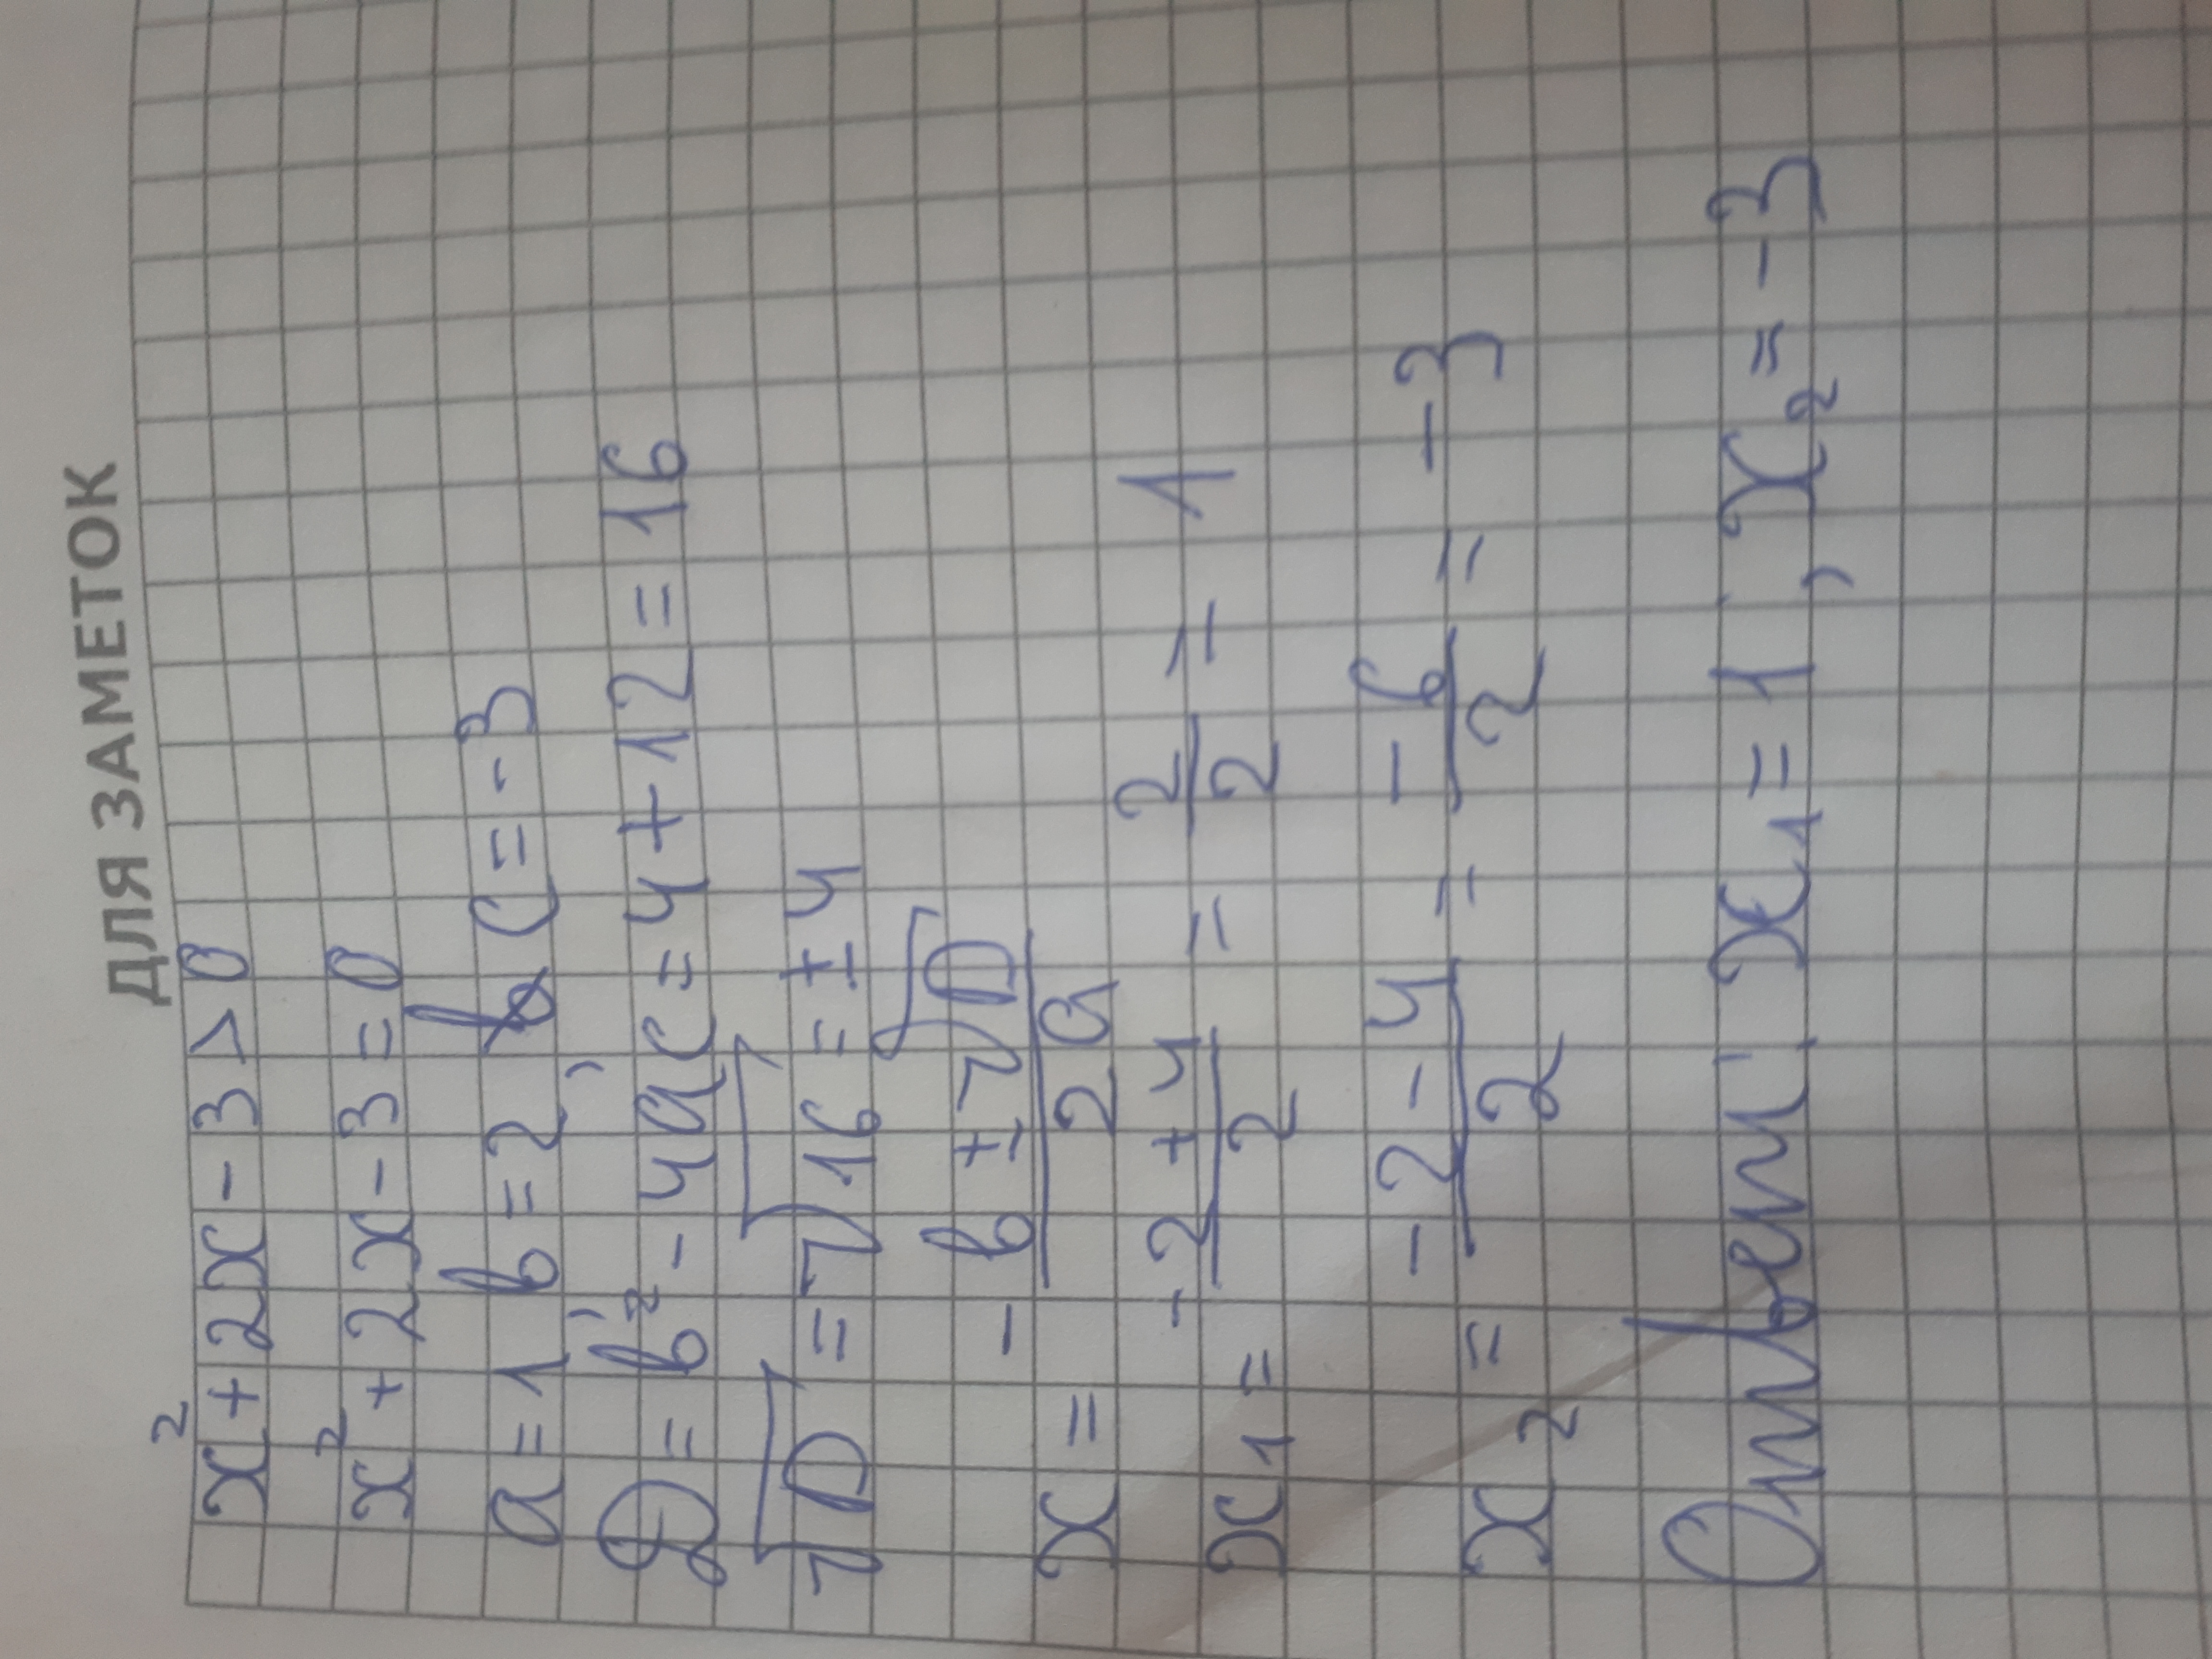 ДЛЯ ЗАМЕТОК
x² + 2x - 3 > 0
x² + 2x - 3 = 0
a = 1, b = 2, c = -3
D = b² - 4ac = 4 + 12 = 16
√D = √16 = ±4
x = (-b ± √D)/2a
x₁ = (-2 + 4)/2 = 2/2 = 1
x₂ = (-2 - 4)/2 = -6/2 = -3
Ответ: x₁ = 1, x₂ = -3